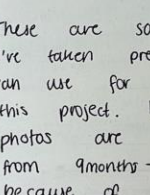 These are so
've taken pre
an use for
this project.
photos are
from 9months -
because of